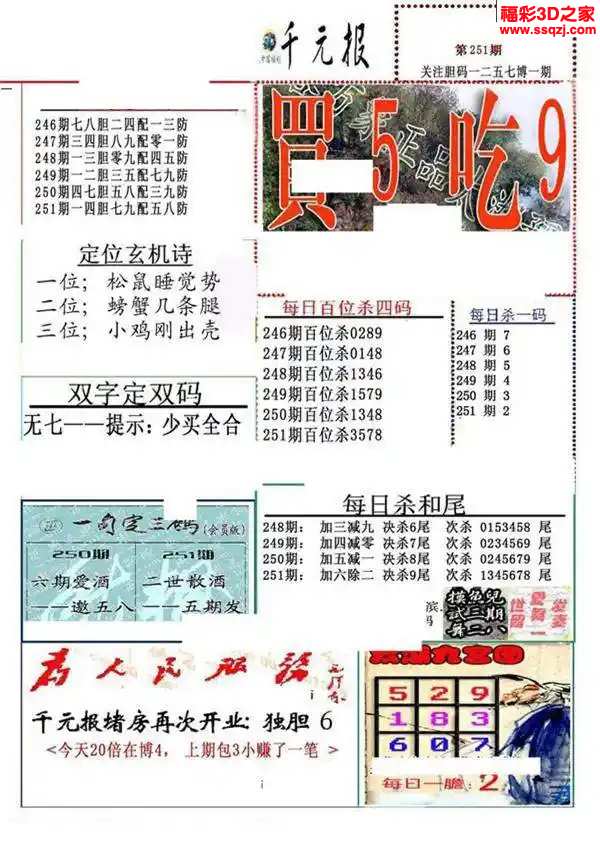 福彩3D之家
www.ssqzj.com
千元报
第251期
关注胆码一二五七博一期
246期七八胆二四配一三防
247期三四胆八九配零一防
248期一三胆零九配四五防
249期一二胆三五配七九防
250期四七胆五八配三九防
251期一四胆七九配五八防
買5吃9
定位玄机诗
一位; 松鼠睡觉势
二位; 螃蟹几条腿
三位; 小鸡刚出壳
每日百位杀四码
246期百位杀0289
247期百位杀0148
248期百位杀1346
249期百位杀1579
250期百位杀1348
251期百位杀3578
每日杀一码
246 期 7
247 期 6
248 期 5
249 期 4
250 期 3
251 期 2
双字定双码
无七——提示: 少买全合
一句定三码(会员版)
250期
六期爱酒
——邀五八
251期
二世散酒
——五期发
每日杀和尾
248期: 加三减九 决杀6尾 次杀 0153458 尾
249期: 加四减零 决杀7尾 次杀 0234569 尾
250期: 加五减一 决杀8尾 次杀 0245679 尾
251期: 加六除二 决杀9尾 次杀 1345678 尾
为人民服务
千元报堵房再次开业: 独胆 6
<今天20倍在博4, 上期包3小赚了一笔>
5 2 9
1 8 3
6 0 7
每日一膽: 2